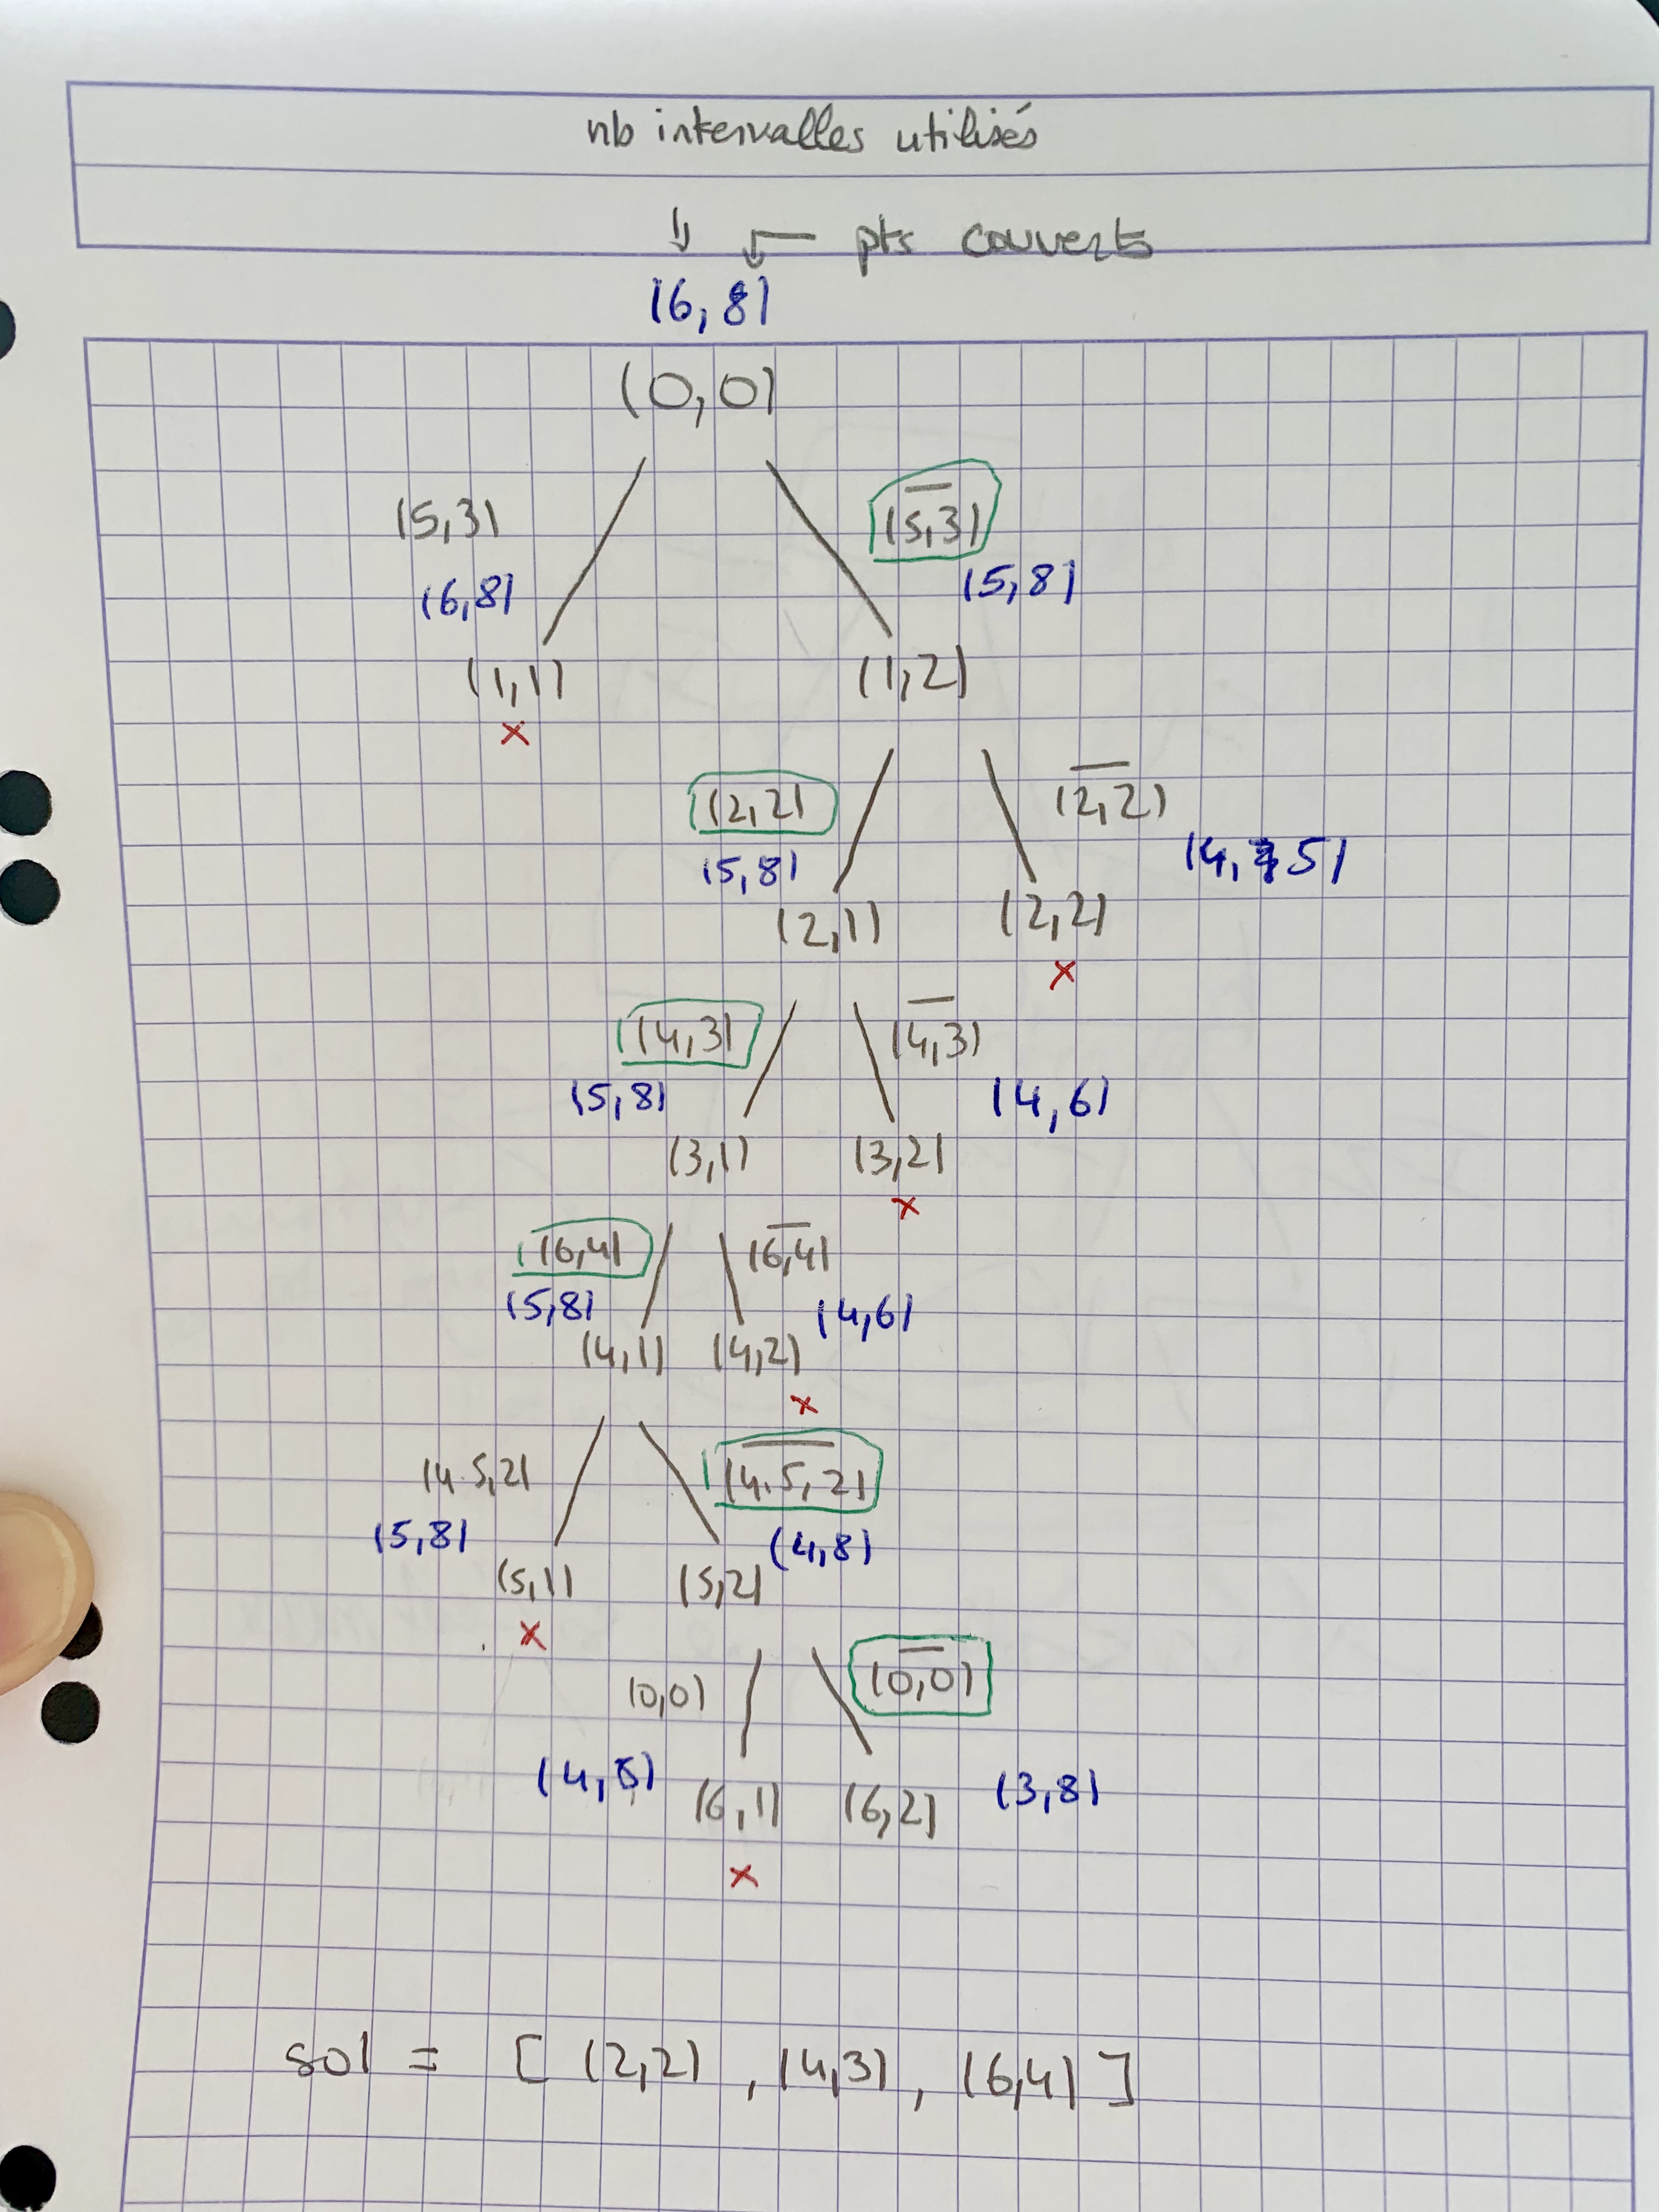 nb intervalles utilisés
↓ ↙ pts couverts
(6,8)
(0,0)
(5,3) (5,3)
(6,8) (5,8)
(1,1) (1,2)
×
(2,2) (2,2)
(5,8) (4,5)
(2,1) (2,2)
×
(4,3) (4,3)
(5,8) (4,6)
(3,1) (3,2)
×
(6,4) (6,4)
(5,8) (4,6)
(4,1) (4,2)
×
(4.5,2) (4.5,2)
(5,8) (4,8)
(5,1) (5,2)
×
(0,0) (0,0)
(4, ) (3,8)
(6,1) (6,2)
×
sol = [ (2,2) , (4,3) , (6,4) ]